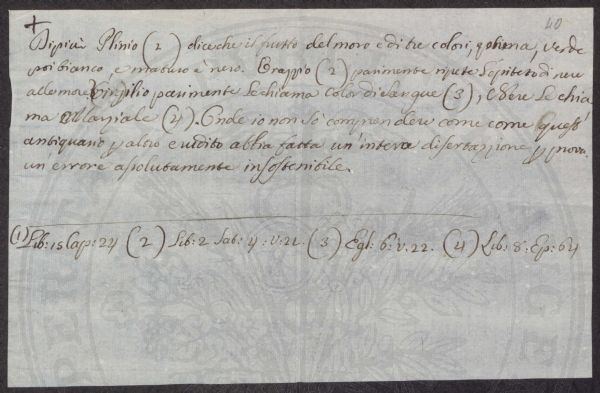 40
Di più Plinio (2) dice che il frutto del moro è di tre colori, prima, verde
poi bianco, e maturo è nero. Orazzio (2) parimente ripete l'epiteto di neri
alle more Virgilio parimente le chiama color di sangue (3), le chia
ma Marziale (4). Onde io non so comprendere come come quest'
antiquario per altro erudito abbia fatta un'intera disertazzione per provare
un'errore assolutamente insostenibile.
(1) Lib: 15 Cap: 24 (2) Lib: 2 Sat: 4: v: 21. (3) Egl: 6: v. 22. (4) Lib: 8: Ep: 64